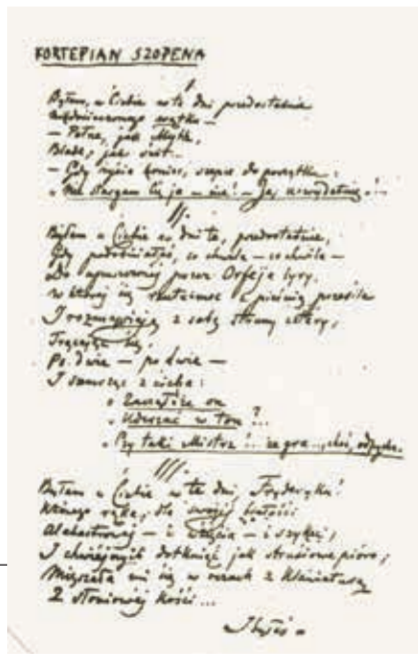 FORTEPIAN SZOPENA
I.
Byłem u Ciebie w te dni przedostatnie
Niedocieczonego wątku —
— Pełne, jak Mythe,
Blade, jak świt...
— Gdy życia koniec, szepce do początku:
„Nie stargam Cię ja — nie! — Ja, uwydatnię!..
II.
Byłem u Ciebie w dni te, przedostatnie,
Gdy podobniałeś, co chwila — co chwila —
Do upuszczonej przez Orfeja lyry,
W której się rzutu-moc z pieśnią przesila
I rozmawiają z sobą struny cztery,
Trącając się,
Po dwie — po dwie —
I szemrząc z cicha:
„Zacząłże on
„Uderzać w ton?...
„Czy taki Mistrz!... że gra... choć, odpycha..
III.
Byłem u Ciebie w te dni, Fryderyku!
Którego ręka, dla swojéj białości
Alabastrowéj — i wzięcia — i szyku,
I chwiejnych dotknięć jak strusiowe pióro,
Mięszała mi się w oczach z klawiaturą
Z słoniowej kości...
I byłeś